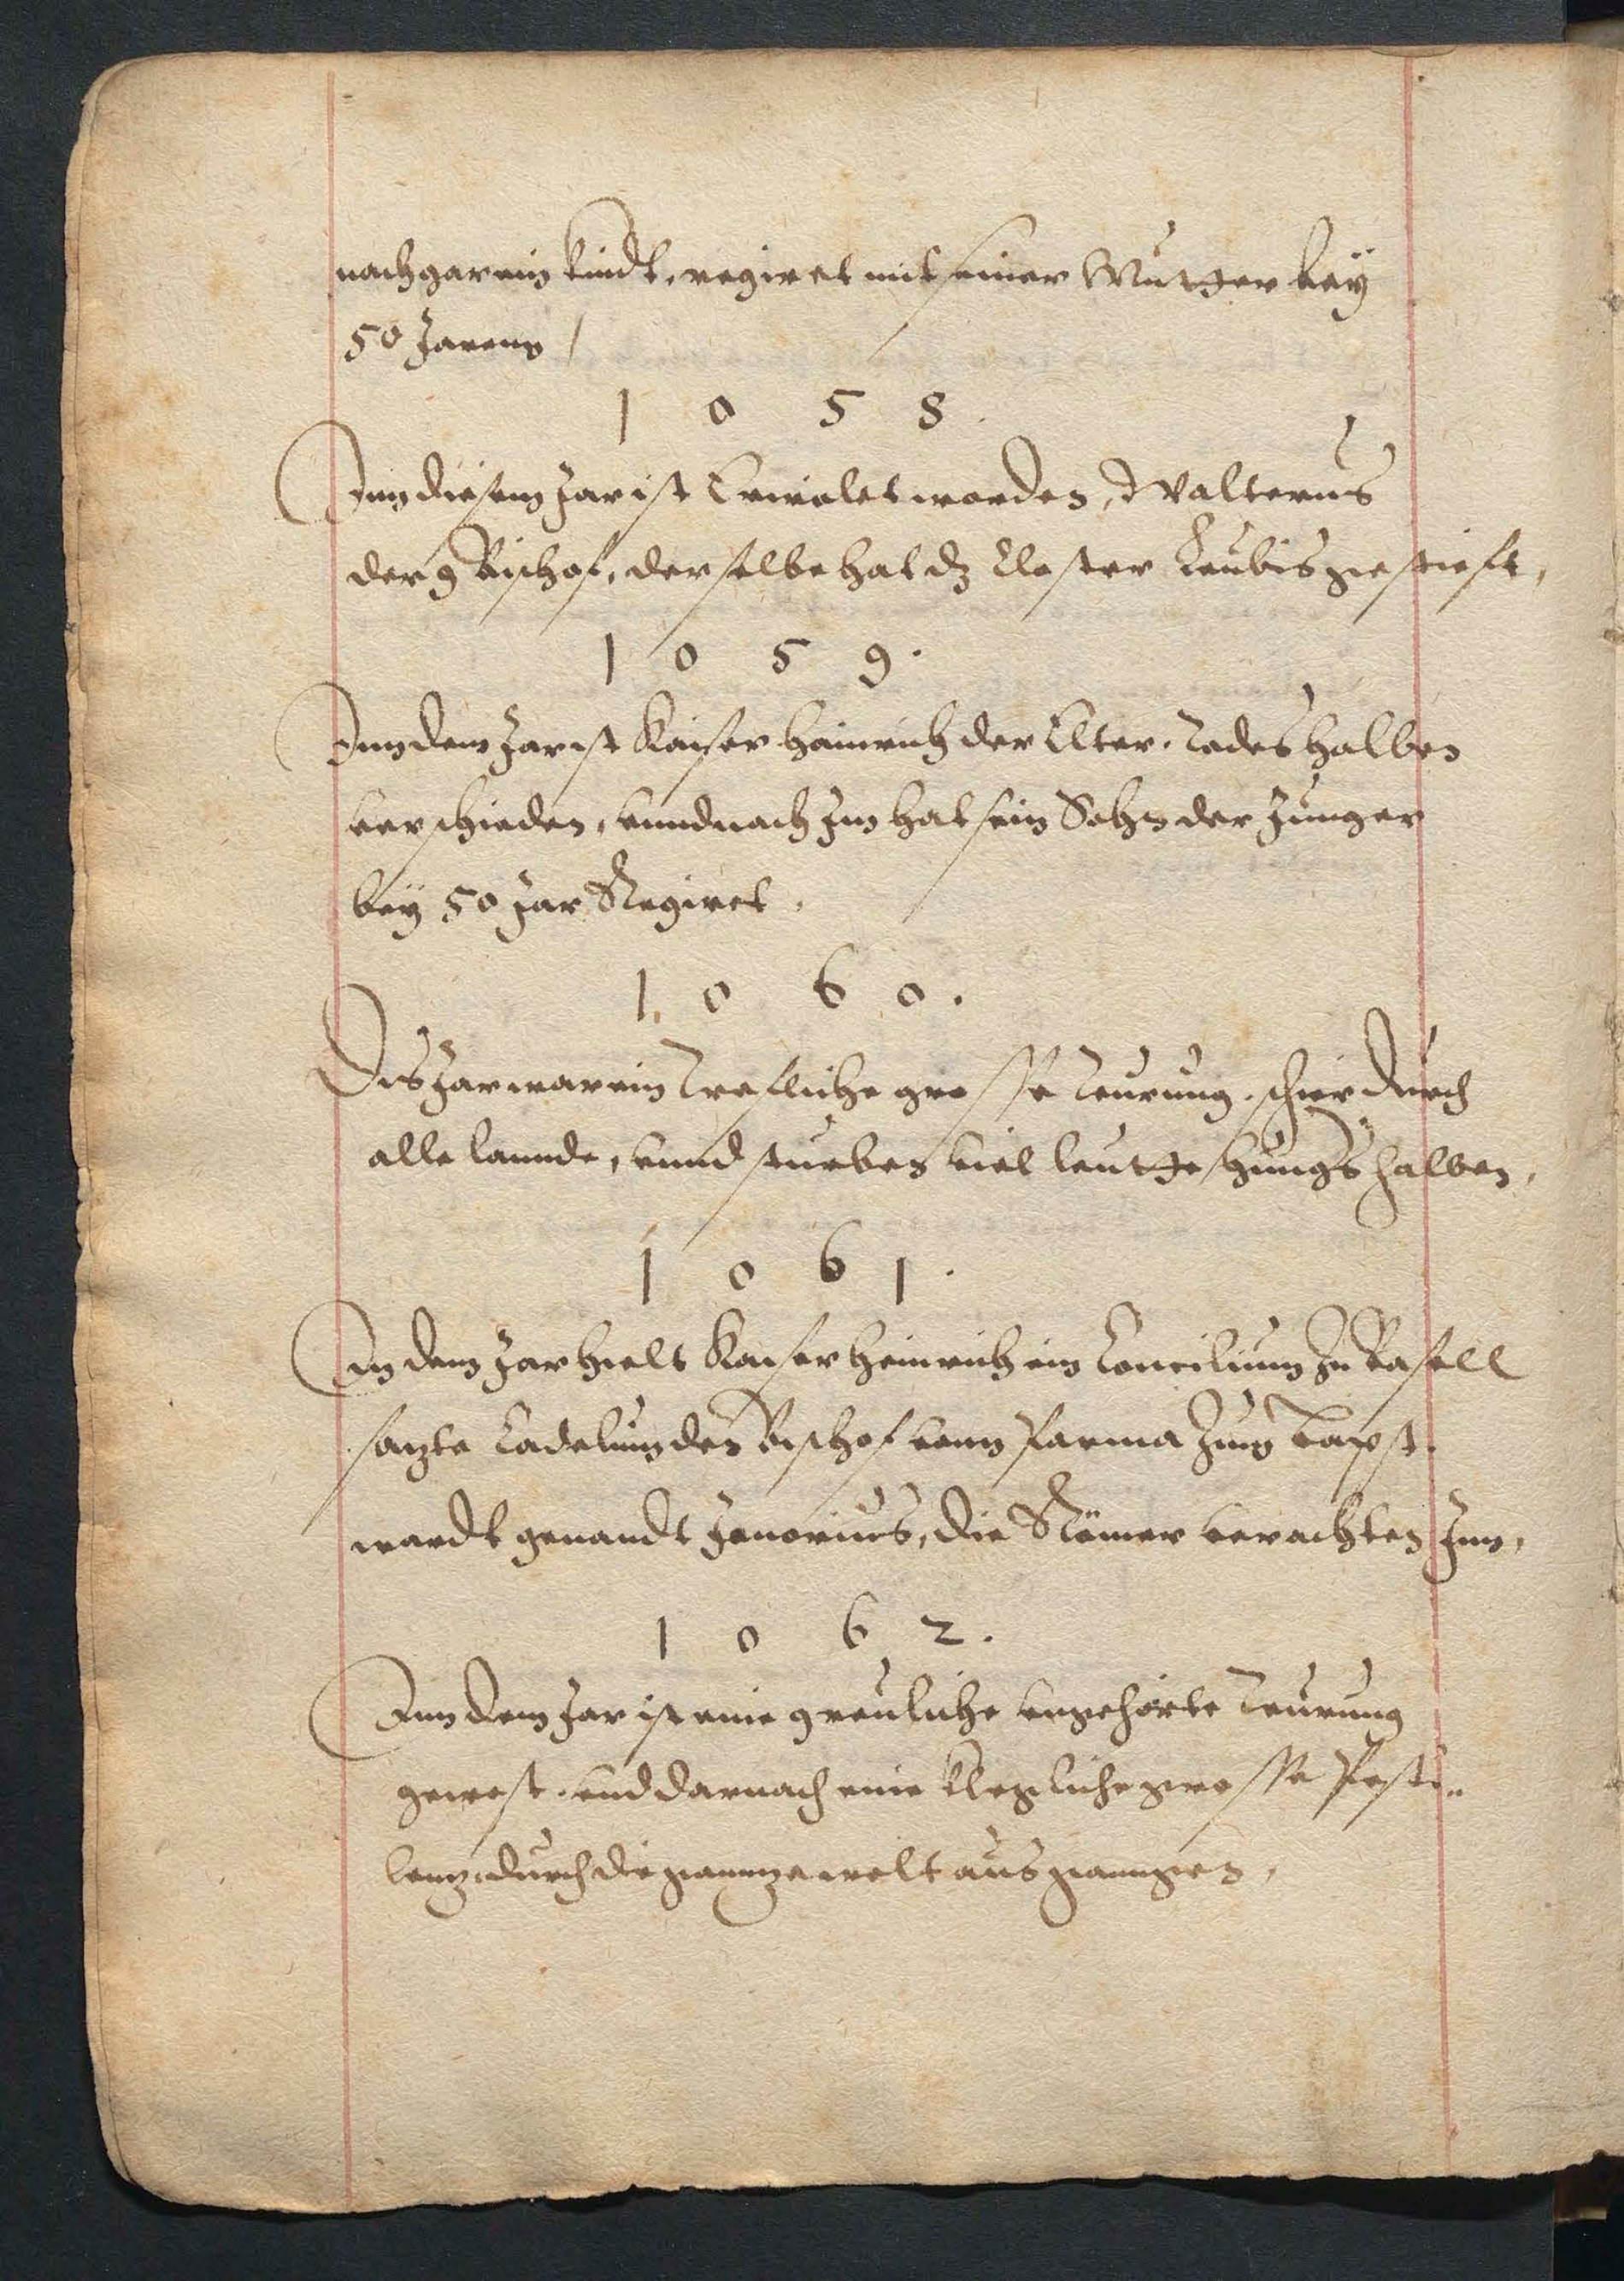 noch gar ein kindt, regiret mit seiner Mutter bey
50 Jarenn /
1 0 5 8.
Inn diesem Jar ist Erwalet worden, Walterus
der 9 Bischof, derselbe hat dz Closter Leubis gestieft,
1 0 5 9.
Inn dem Jar ist Kaiser Hainrich der Elter, Todes halben
verschieden, vnnd nach Im hat sein Sohn der Junger
bey 50 Jar Regiret,
1 0 6 0.
Dis Jar war ein Trefliche grosse Teurung, schier durch
alle lannde, vnnd sturben viel leutte hungers halben,
1 0 6 1.
In dem Jar hielt Kaiser Heinrich ein Concilium zu Basell
sazte Cadelum den Bischof vonn Parma zum Bapst,
wardt genandt Honorius, die Römer verachten Inn,
1 0 6 2.
Inn dem Jar ist eine greuliche vngehörte Teurung
gewest, vnd darnach eine klegliche grosse Pesti-
lenz, durch die gannze welt aus ganngen,